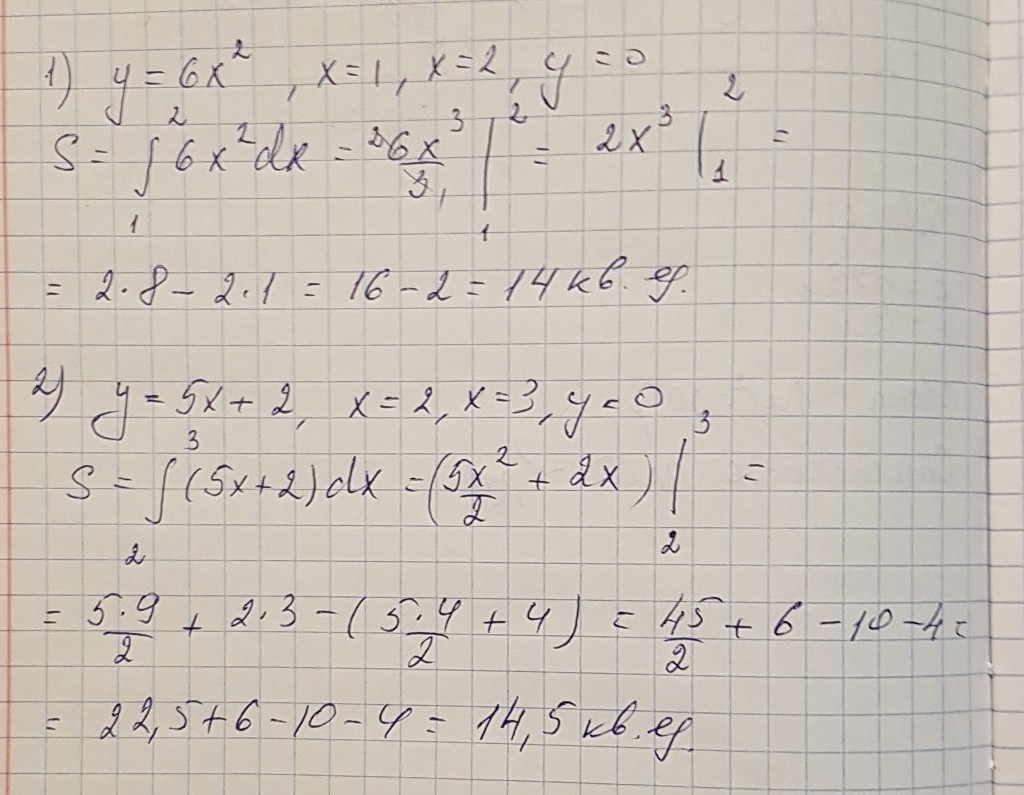 1) y = 6x², x = 1, x = 2, y = 0
S = ∫₁² 6x² dx = ²6x³/3₁ |₁² = 2x³ |₁² =
= 2·8 − 2·1 = 16 − 2 = 14 кв. ед.
2) y = 5x + 2, x = 2, x = 3, y = 0
S = ∫₂³ (5x + 2) dx = (5x²/2 + 2x) |₂³ =
= 5·9/2 + 2·3 − (5·4/2 + 4) = 45/2 + 6 − 10 − 4 =
= 22,5 + 6 − 10 − 4 = 14,5 кв. ед.